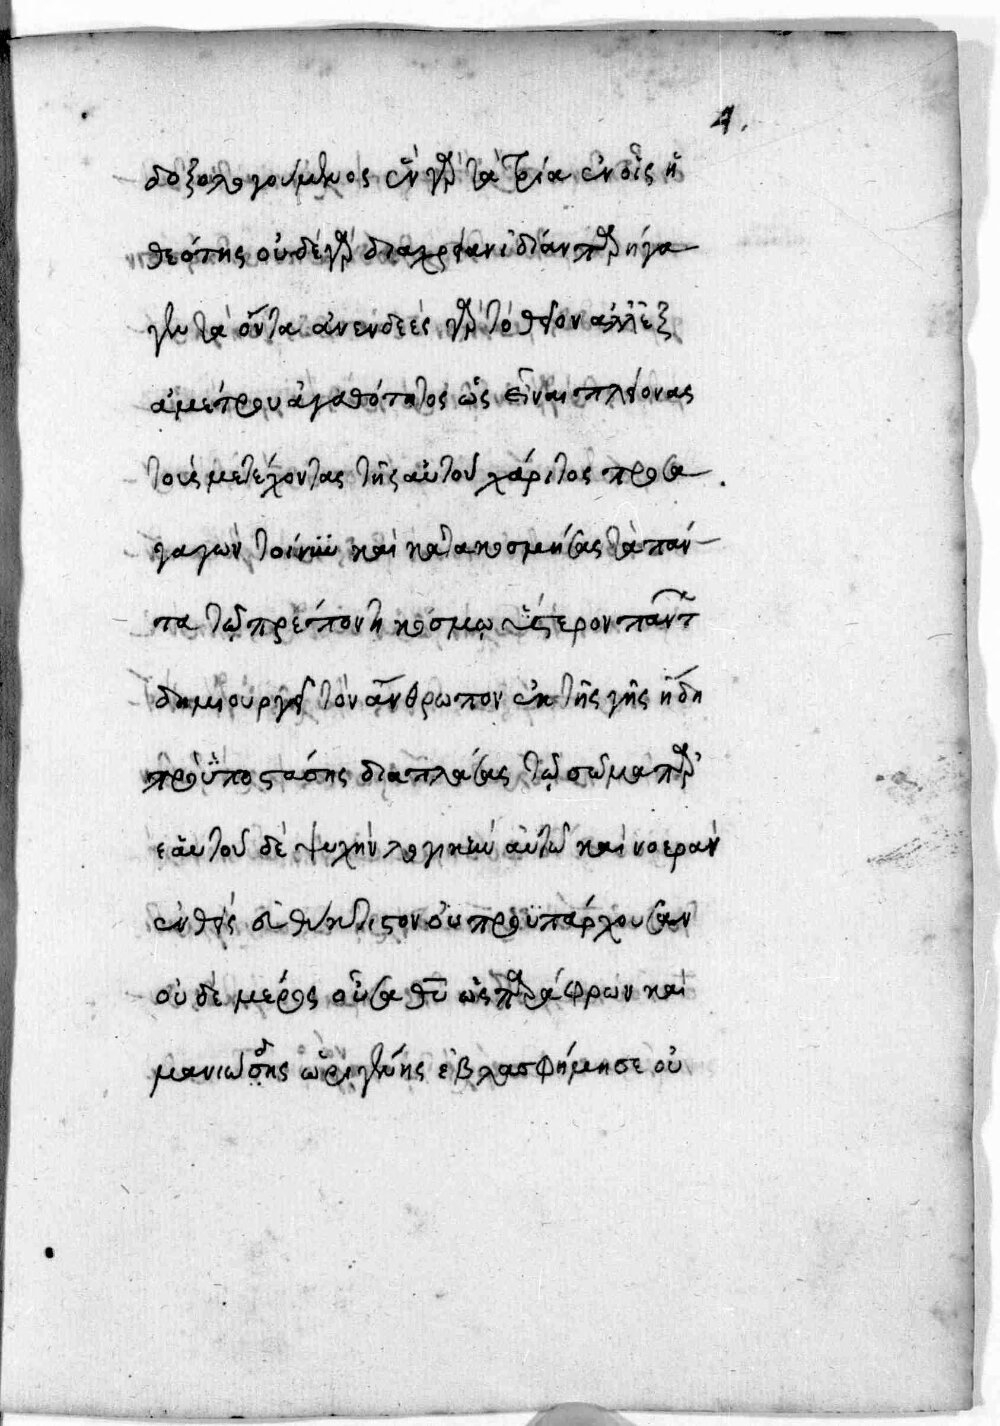 4.
δοξολογούμενος ἓν γὰρ τὰ τρία ἐν οἷς ἡ
θεότης οὐδὲ γὰρ διὰ χρείαν ἰδίαν παρήγα
γεν τὰ ὄντα ἀνενδεὲς γὰρ τὸ θεῖον ἀλλ' ἐξ
ἀμέτρου ἀγαθότητος ὡς εἶναι πλείονας
τοὺς μετέχοντας τῆς αὐτοῦ χάριτος προα
γαγὼν τοίνυν καὶ κατακοσμήσας τὰ πάν
τα τῷ πρέποντι κόσμῳ ὕστερον πάντ
δημιουργεῖ τὸν ἄνθρωπον ἐκ τῆς γῆς ἤδη
προϋποστάσης διαπλάσας τῷ σῶμα παρ'
ἑαυτοῦ δὲ ψυχὴν λογικὴν αὐτῷ καὶ νοερὰν
ἐνθεὶς οὐ προϋπάρχουσαν
οὐδὲ μέρος οὖσα θυ ὡς παράφρων καὶ
μανιώδης ὠριγένης ἐβλασφήμησε οὐ